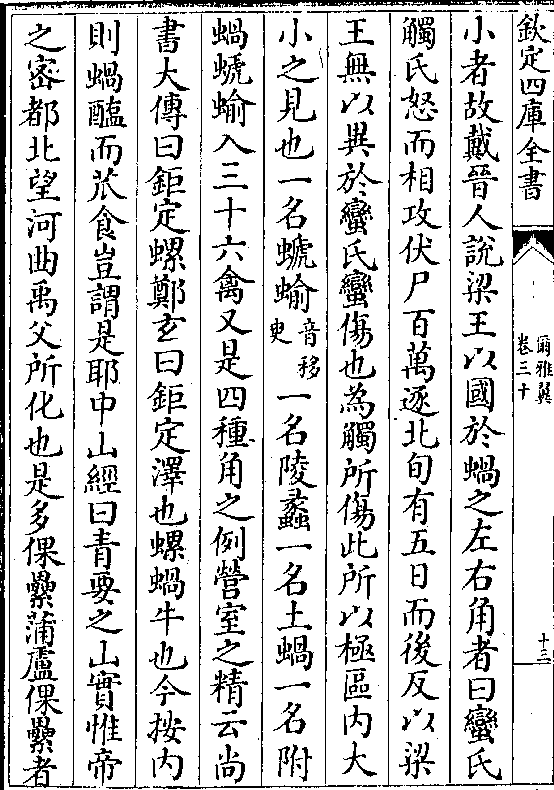 欽定四庫全書
爾雅翼
卷三十
十三
小者故戴晉人説梁王以國於蝸之左右角者曰蠻氏
觸氏怒而相攻伏尸百萬逐北旬有五日而後反以梁
王無以異於蠻氏蠻傷也為觸所傷此所以極區内大
小之見也一名螔蝓音移臾一名陵蠡一名土蝸一名附
蝸螔蝓入三十六禽又是四種角之例營室之精云尚
書大傳曰鉅定螺鄭玄曰鉅定澤也螺蝸牛也今按内
則蝸醢而苽食豈謂是耶中山經曰青要之山實惟帝
之密都北望河曲禹父所化也是多倮纍蒲盧倮纍者